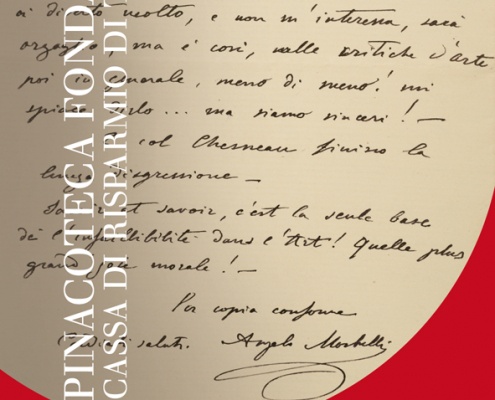 ci diverto molto, e non m'interessa, sarà
orgoglio, ma è così, nelle critiche d'arte
poi in generale, meno di meno! mi
spiace dirlo... ma siamo sinceri! —
col Chesneau finisco la
lunga digressione —
savoir, c'est la seule base
de l'infaillibilité dans l'Art! Quelle plus
grande joie morale! —
Per copia conforme
saluti. Angelo Morbelli
PINACOTECA FOND
CASSA DI RISPARMIO DI